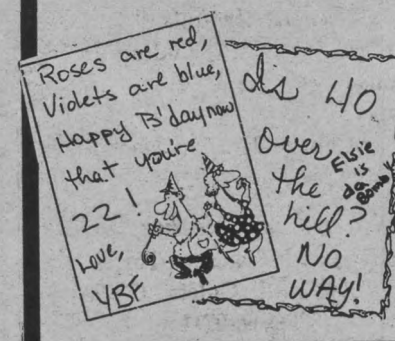 Roses are red,
Violets are blue,
Happy B'day now
that you're
22!
Love,
YBF
Is 40
over
the
hill?
NO
WAY!
Elsie
is
da
Bomb